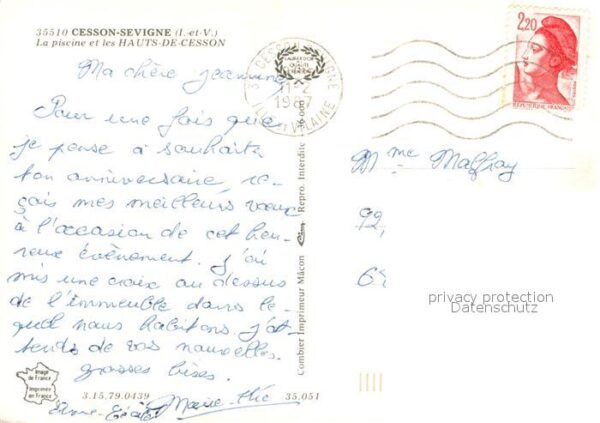 35510 CESSON-SEVIGNE (I.-et-V.)
La piscine et les HAUTS-DE-CESSON
Ma chère Jeannine
Pour une fois que
je pense à souhaiter
ton anniversaire, re-
çois mes meilleurs vœux
à l'occasion de cet heu-
reux évènement. J'ai
mis une croix au dessus
de l'immeuble dans le-
quel nous habitons. J'at-
tends de vos nouvelles.
grosses bises.
Marie
Image
de France
Imprimée
en France
3.15.79.0439
35.051
Combier Imprimeur Mâcon
Repro. Interdite
35 CESSON SEVIGNE
11-2
1987
ILLE ET VILAINE
2,20
REPUBLIQUE FRANCAISE
Mme Malfray
92,
privacy protection
Datenschutz